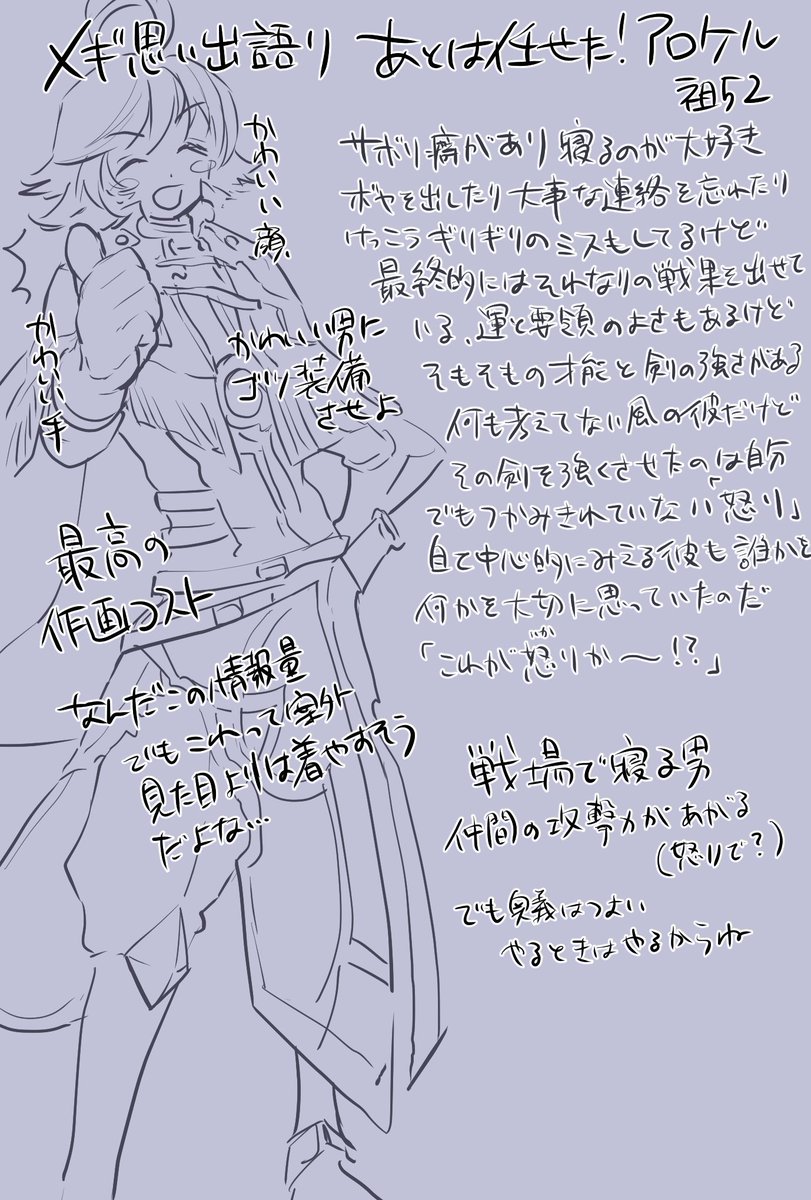 メギ思い出語り あとは任せた！アロケル
祖52
サボり癖があり寝るのが大好き
ボヤを出したり大事な連絡を忘れたり
けっこうギリギリのミスもしてるけど
最終的にはそれなりの戦果を出せて
いる、運と要領のよさもあるけど
そもそもの才能と剣の強さがある
何も考えてない風の彼だけど
その剣を強くさせたのは自分
でもつかみきれていない「怒り」
自て中心的にみえる彼も誰かを
何かを大切に思っていたのだ
「これが怒りか〜!?」
か
かわいい顔
かわいい手
かわいい男に
ゴツ装備
させよ
最高の
作画コスト
なんだこの情報量
でもこれって案外
見た目よりは着やすそう
だよな…
戦場で寝る男
仲間の攻撃力があがる
(怒りで？)
でも奥義はつよい
やるときはやるからね